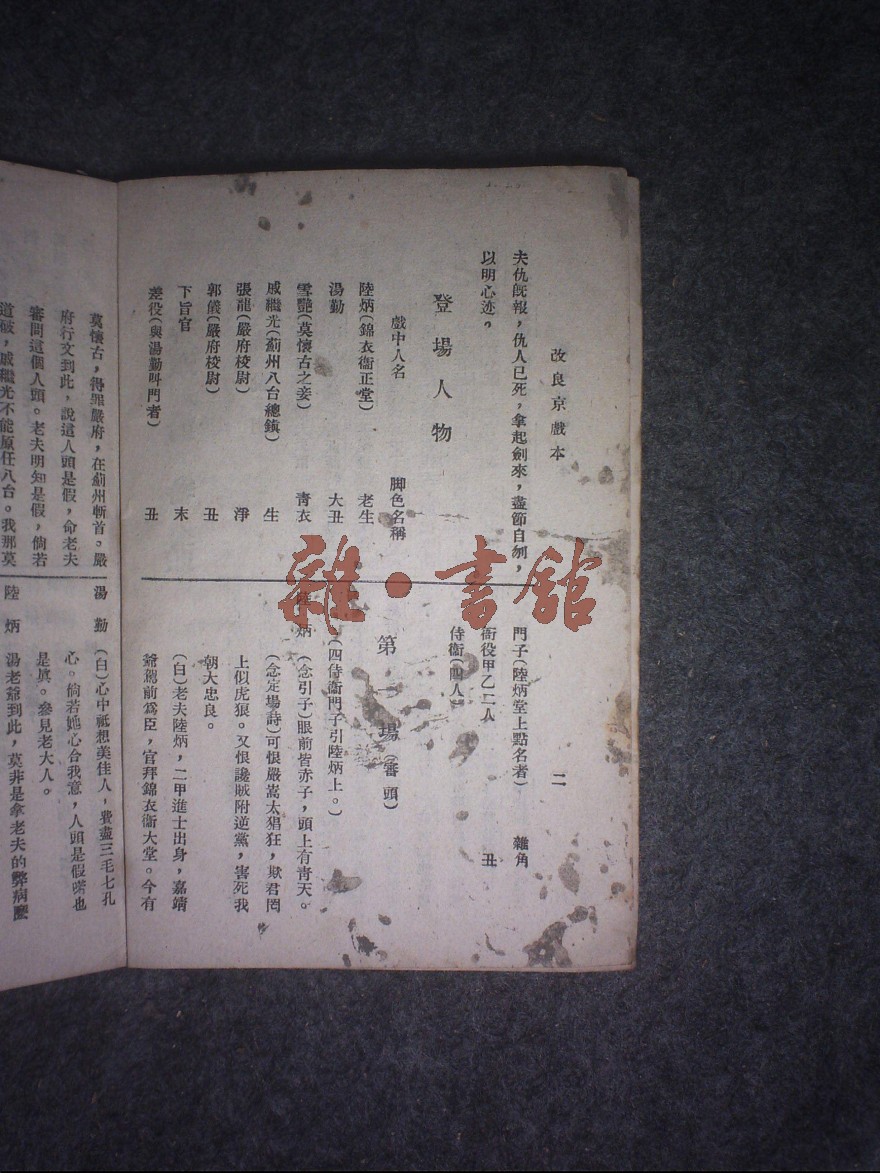 改良京戲本
二
夫仇既報，仇人已死，拿起劍來，盡節自刎，
以明心迹。
登場人物
戲中人名 脚色名稱
陸炳(錦衣衞正堂) 老生
湯勤 大丑
雪艷(莫懷古之妾) 青衣
戚繼光(薊州八台總鎮) 生
張龍(嚴府校尉) 淨
郭儀(嚴府校尉) 丑
下旨官 末
差役(與湯勤叫門者) 丑
門子(陸炳堂上點名者) 雜角
衙役甲乙二人 丑
侍衞(四人)
第一場(審頭)
(四侍衞門子引陸炳上。)
陸炳 (念引子)眼前皆赤子，頭上有青天。
(念定場詩)可恨嚴嵩太猖狂，欺君罔
上似虎狼。又恨讒賊附逆黨，害死我
朝大忠良。
(白)老夫陸炳，二甲進士出身，嘉靖
爺駕前為臣，官拜錦衣衞大堂。今有
莫懷古，得罪嚴府，在薊州斬首。嚴
府行文到此，說這人頭是假，命老夫
審問這個人頭。老夫明知是假，倘若
道破，戚繼光不能原任八台。我那莫
湯勤 (白)心中祇想美佳人，費盡三毛七孔
心。倘若她心合我意，人頭是假喏也
是眞。參見老大人。
陸炳 湯老爺到此，莫非是拿老夫的弊病麽
雜·書舘